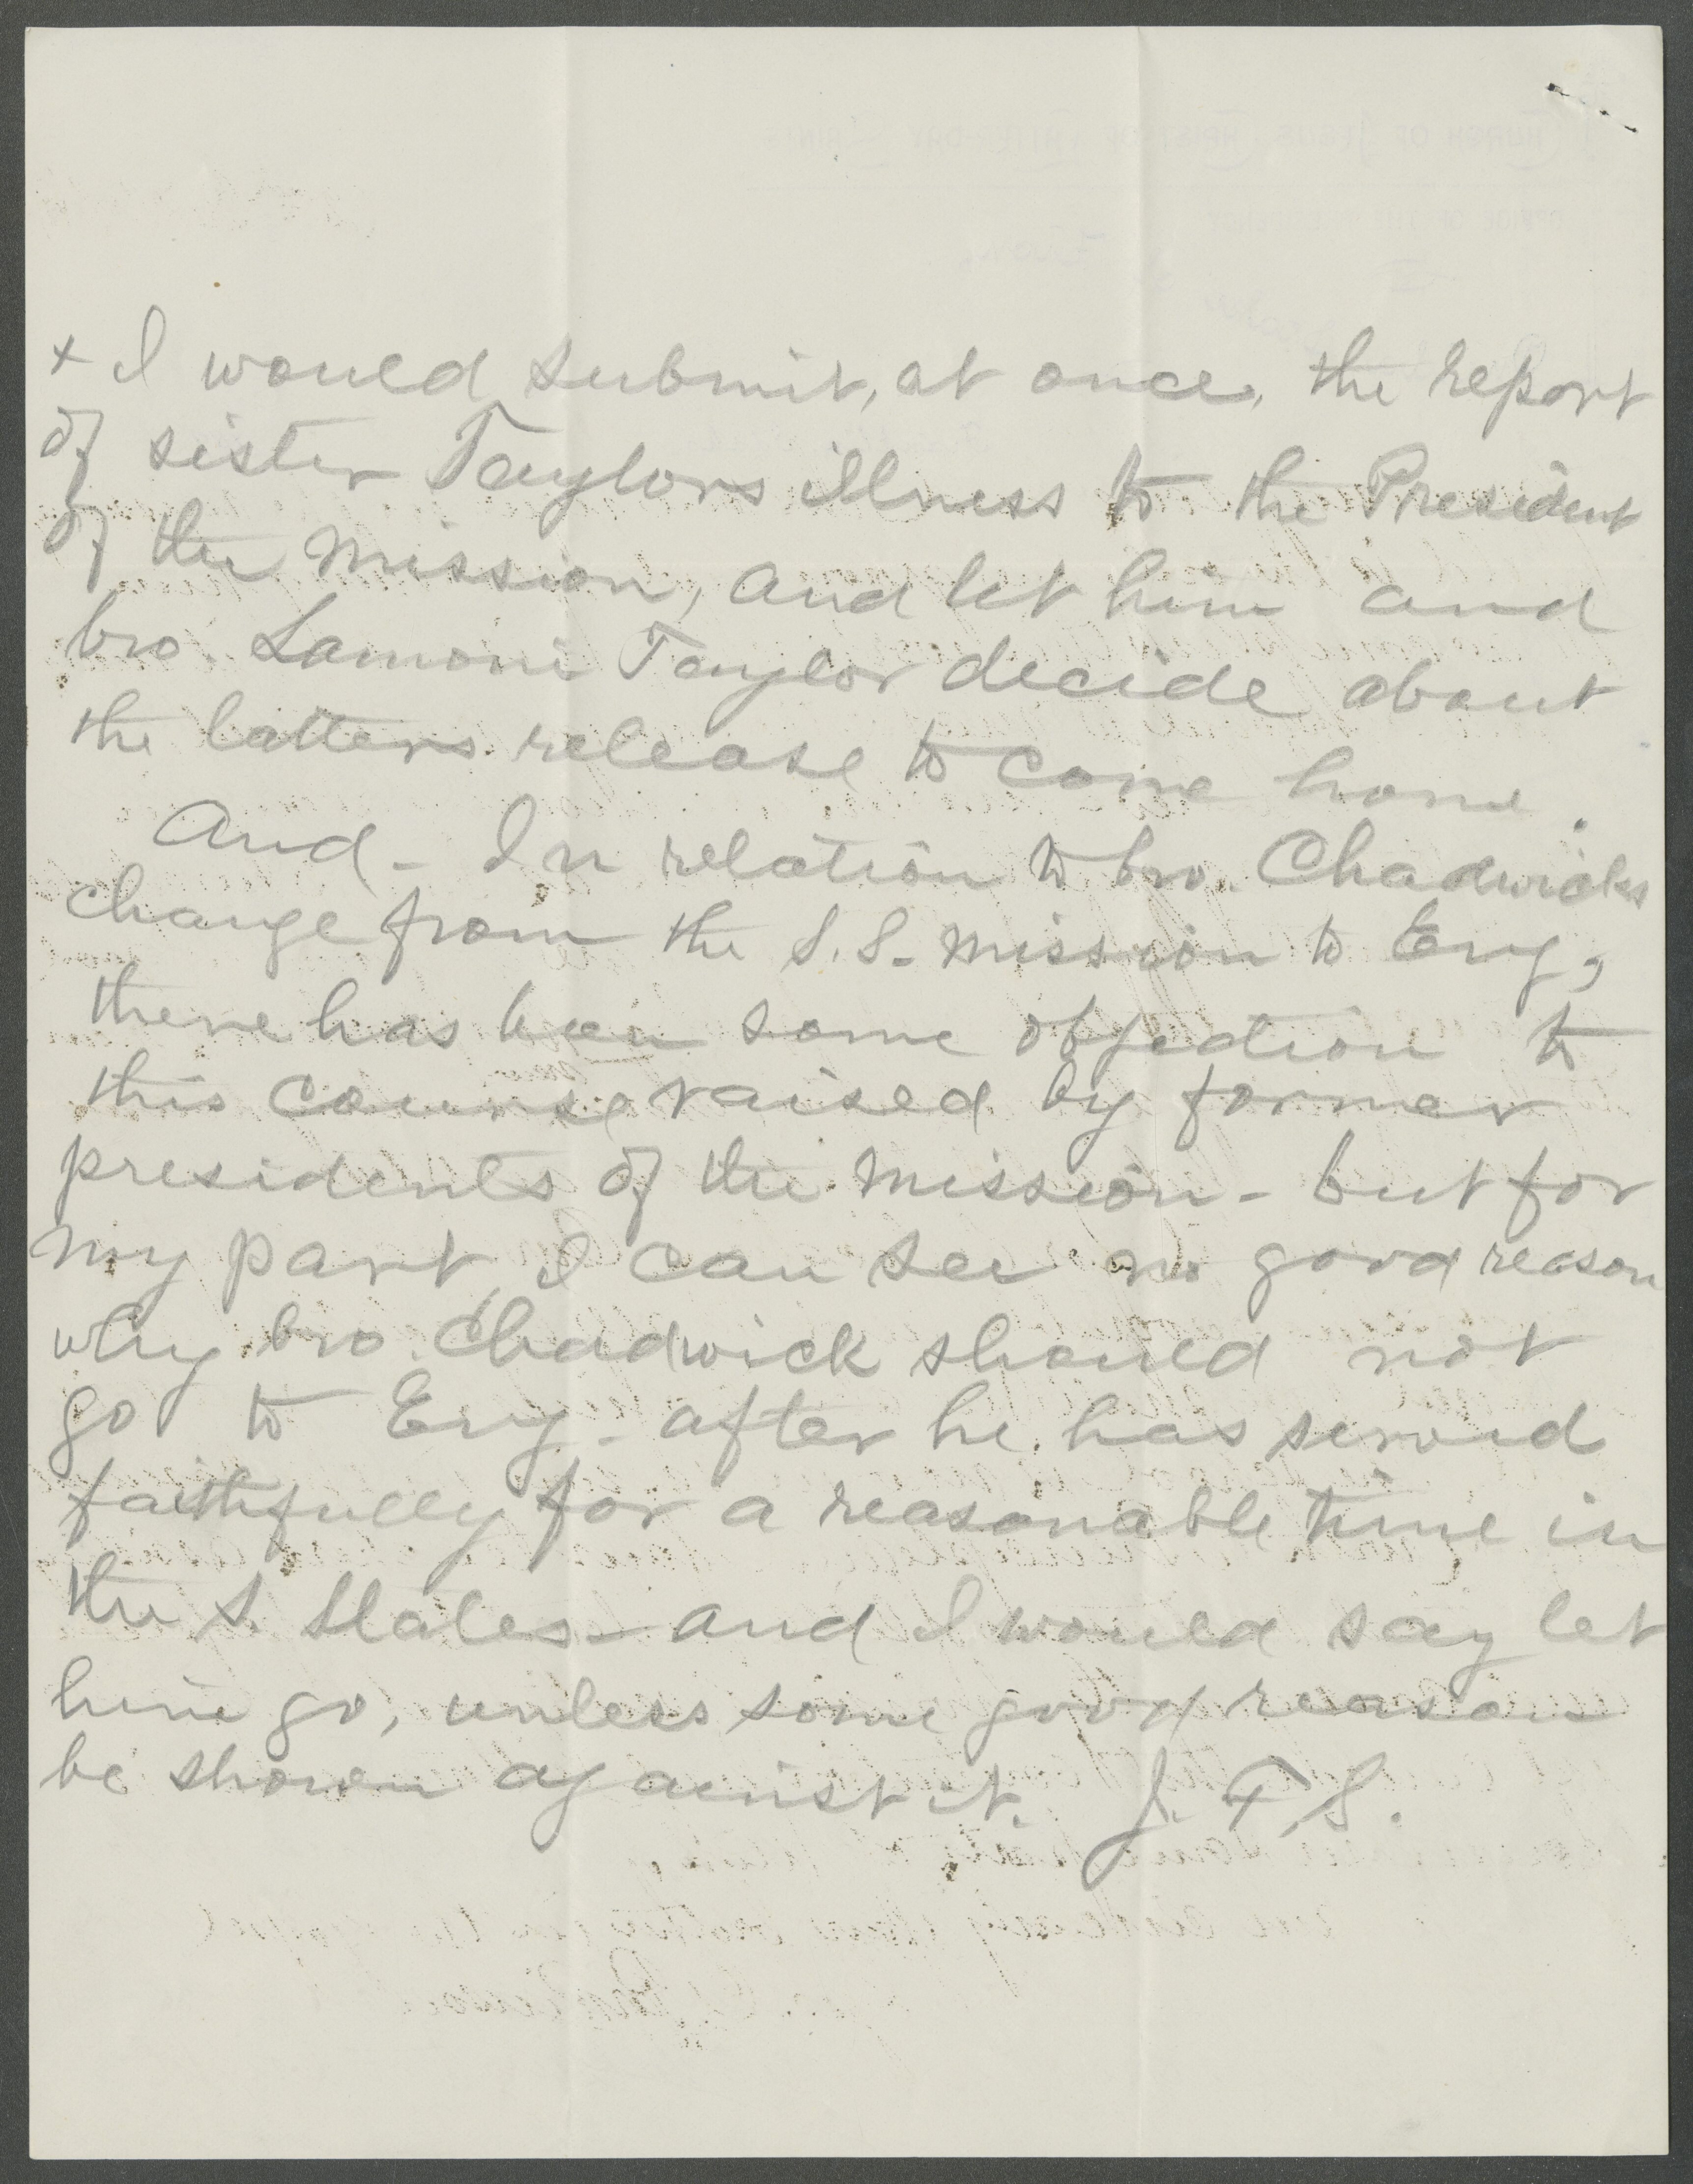 + I would submit, at once, the report
of sister Taylors illness to the President
of the Mission, and let him and
bro. Lamoni Taylor decide about
the latters release to come home.
And - In relation to bro. Chadwicks
change from the S.S. Mission to Eng,
there has been some objection to
this course raised by former
presidents of the Mission - but for
my part, I can see no good reason
why bro. Chadwick should not
go to Eng. after he has served
faithfully for a reasonable time in
the S. States - and I would say let
him go, unless some good reason
be shown against it. J. F. S.